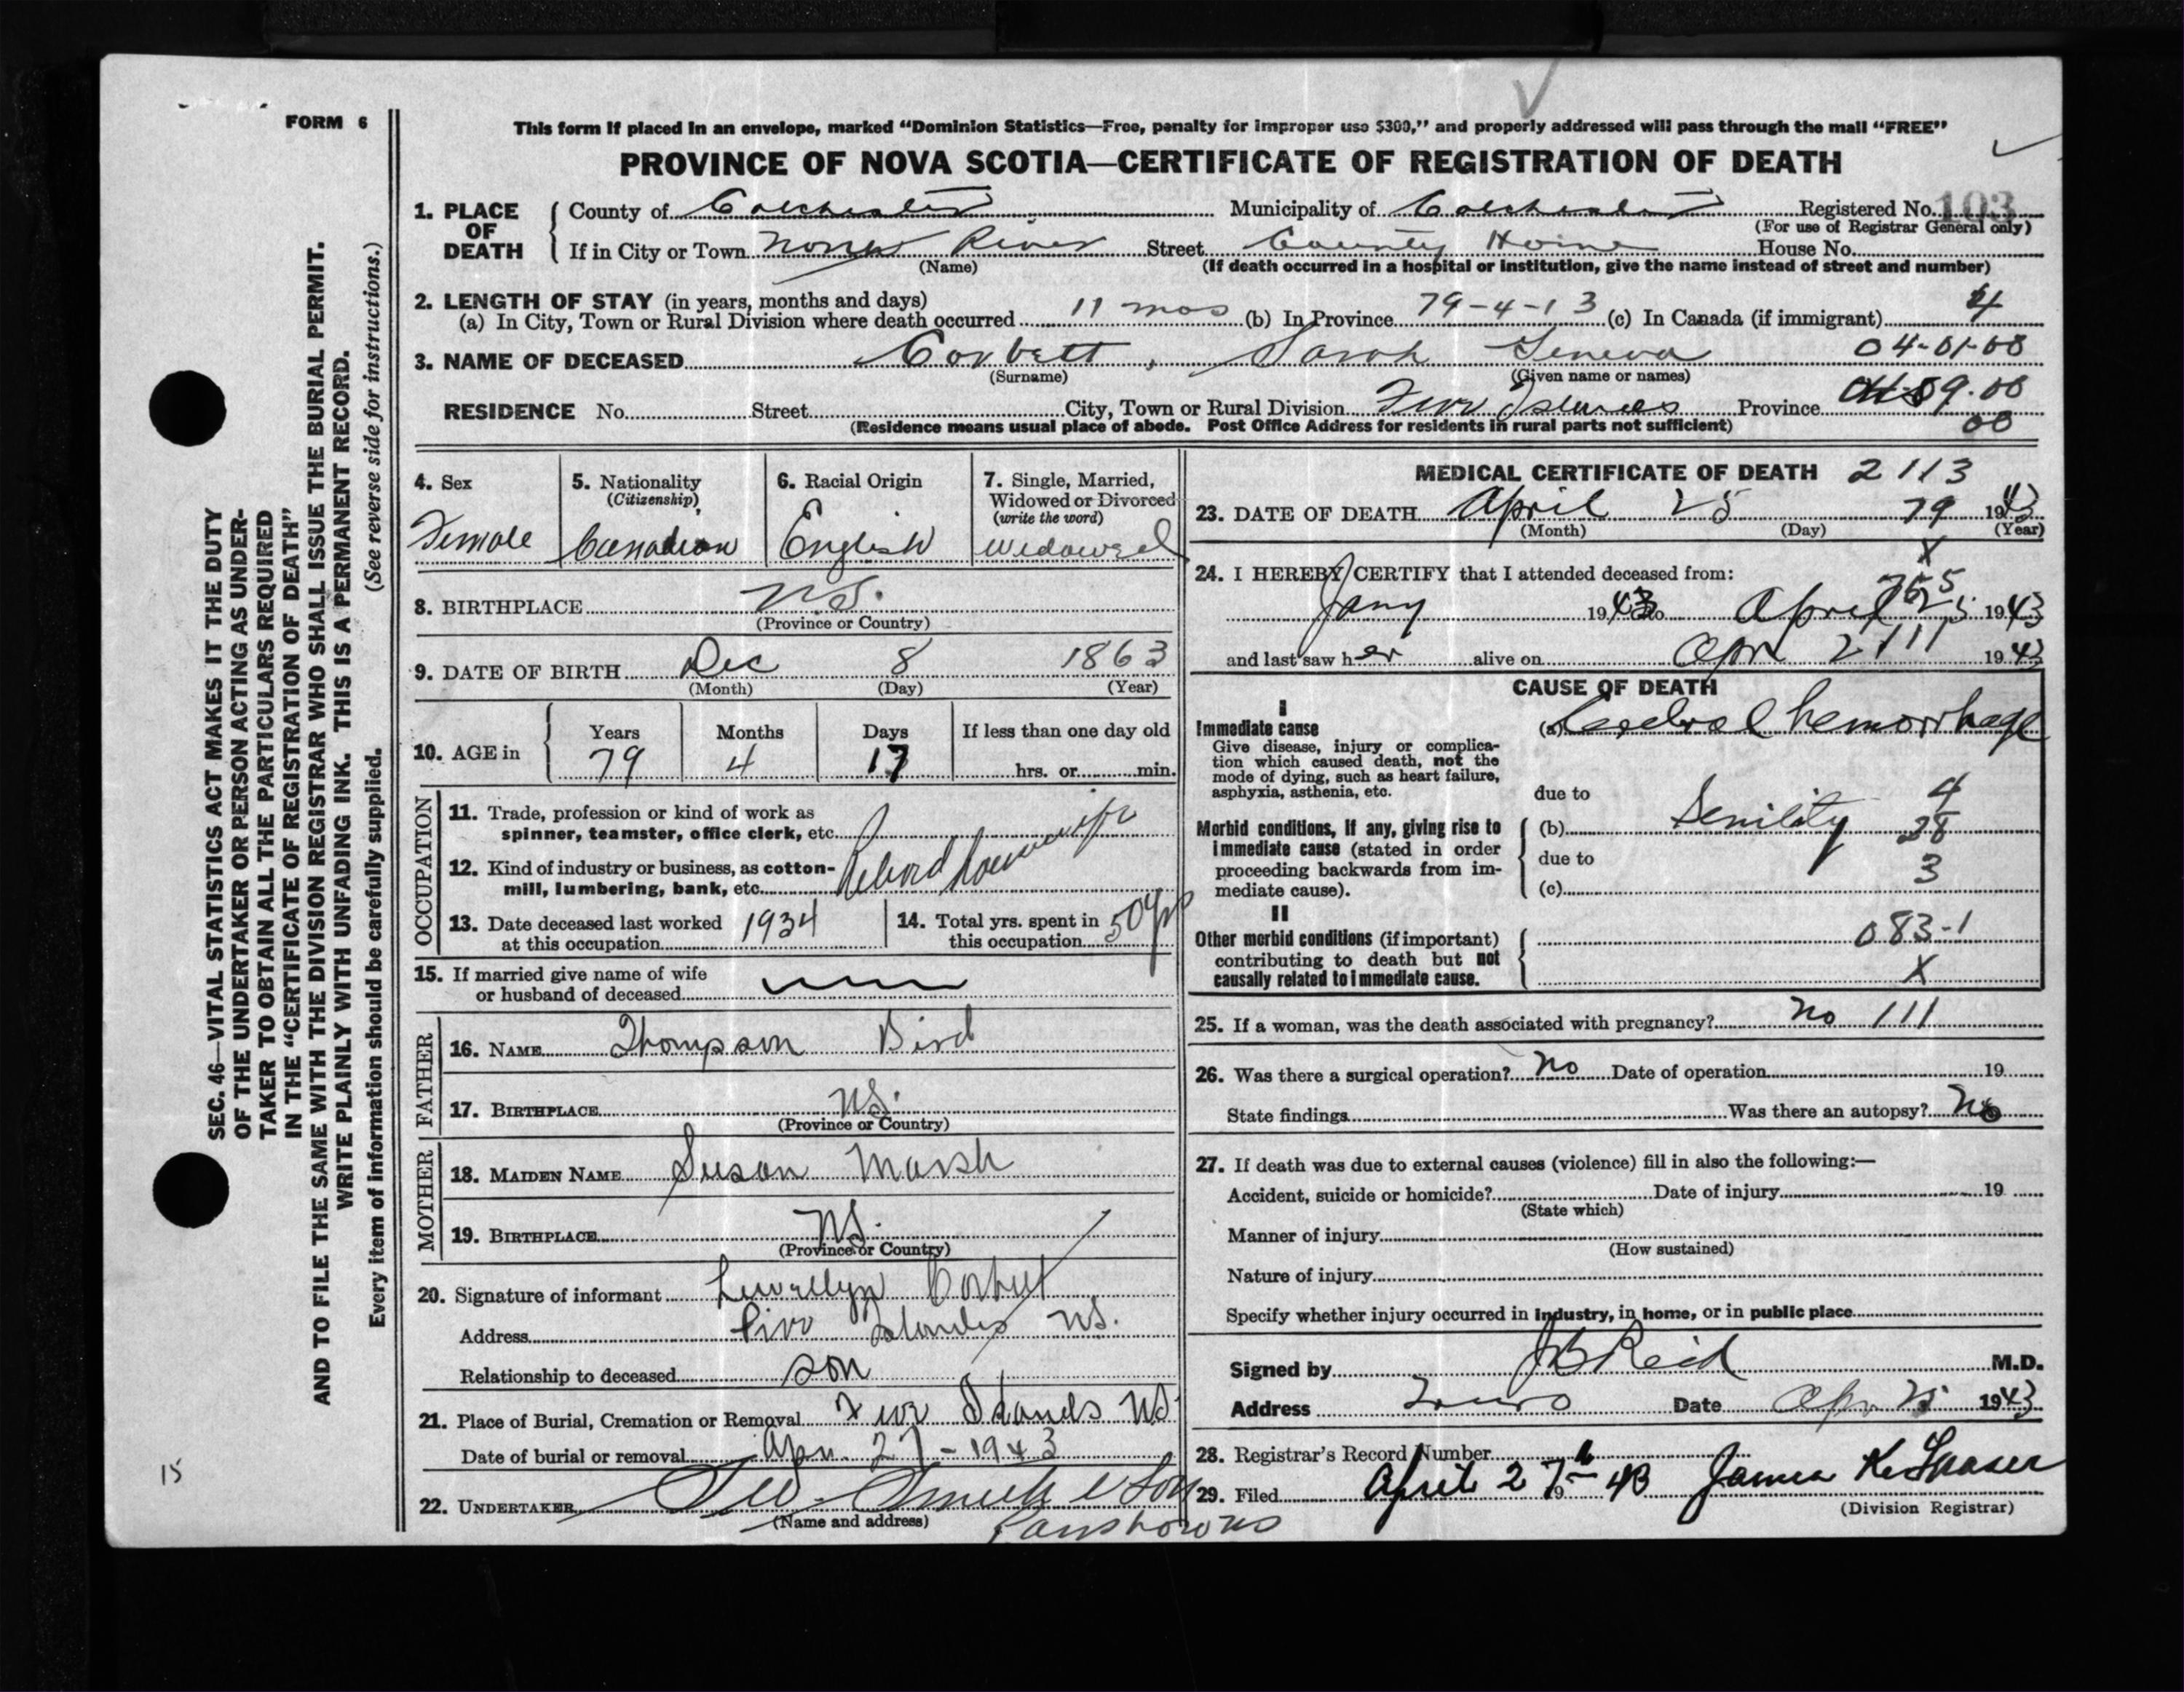 FORM 6
This form if placed in an envelope, marked "Dominion Statistics—Free, penalty for improper use $300," and properly addressed will pass through the mail "FREE"
PROVINCE OF NOVA SCOTIA—CERTIFICATE OF REGISTRATION OF DEATH
1. PLACE OF DEATH County of Colchester Municipality of Colchester Registered No. 103
(For use of Registrar General only)
If in City or Town North River Street County Home House No.
(Name) (If death occurred in a hospital or institution, give the name instead of street and number)
2. LENGTH OF STAY (in years, months and days)
(a) In City, Town or Rural Division where death occurred 11 mos (b) In Province 79-4-13 (c) In Canada (if immigrant) 4
3. NAME OF DECEASED Corbett, Sarah Geneva 04-01-08
(Surname) (Given name or names)
RESIDENCE No. Street City, Town or Rural Division Five Islands Province 09.00
(Residence means usual place of abode. Post Office Address for residents in rural parts not sufficient) 00
4. Sex
Female
5. Nationality
(Citizenship)
Canadian
6. Racial Origin
English
7. Single, Married,
Widowed or Divorced
(write the word)
Widowed
8. BIRTHPLACE N.S.
(Province or Country)
9. DATE OF BIRTH Dec 8 1863
(Month) (Day) (Year)
10. AGE in Years Months Days If less than one day old
79 4 17 hrs. or min.
OCCUPATION
11. Trade, profession or kind of work as
spinner, teamster, office clerk, etc.
12. Kind of industry or business, as cotton-
mill, lumbering, bank, etc. Retired housewife
13. Date deceased last worked
at this occupation 1934
14. Total yrs. spent in
this occupation 50 yrs
15. If married give name of wife
or husband of deceased
FATHER
16. NAME Thompson Bird
17. BIRTHPLACE N.S.
(Province or Country)
MOTHER
18. MAIDEN NAME Susan Marsh
19. BIRTHPLACE N.S.
(Province or Country)
20. Signature of informant Lewellyn Corbett
Address Five Islands N.S.
Relationship to deceased son
21. Place of Burial, Cremation or Removal Five Islands N.S.
Date of burial or removal Apr. 27-1943
22. UNDERTAKER Smith & Son
(Name and address) Parrsboro NS
MEDICAL CERTIFICATE OF DEATH 2113
23. DATE OF DEATH April 25 79 1943
(Month) (Day) (Year)
X
24. I HEREBY CERTIFY that I attended deceased from:
Jany 1943 to April 25 1943
and last saw her alive on Apr 1943
CAUSE OF DEATH
I
Immediate cause
Give disease, injury or complica-
tion which caused death, not the
mode of dying, such as heart failure,
asphyxia, asthenia, etc.
(a) Cerebral hemorrhage
due to 4
Morbid conditions, if any, giving rise to
immediate cause (stated in order
proceeding backwards from im-
mediate cause).
(b) Senility 38
due to
(c) 3
II
Other morbid conditions (if important)
contributing to death but not
causally related to immediate cause.
083-1
X
25. If a woman, was the death associated with pregnancy? No 111
26. Was there a surgical operation? No Date of operation 19
State findings Was there an autopsy? No
27. If death was due to external causes (violence) fill in also the following:—
Accident, suicide or homicide? Date of injury 19
(State which)
Manner of injury
(How sustained)
Nature of injury
Specify whether injury occurred in industry, in home, or in public place
Signed by J B Reid M.D.
Address Truro Date Apr 25 1943
28. Registrar's Record Number
29. Filed April 27 43 James K. Fraser
(Division Registrar)
SEC. 46—VITAL STATISTICS ACT MAKES IT THE DUTY
OF THE UNDERTAKER OR PERSON ACTING AS UNDER-
TAKER TO OBTAIN ALL THE PARTICULARS REQUIRED
IN THE "CERTIFICATE OF REGISTRATION OF DEATH"
AND TO FILE THE SAME WITH THE DIVISION REGISTRAR WHO SHALL ISSUE THE BURIAL PERMIT.
WRITE PLAINLY WITH UNFADING INK. THIS IS A PERMANENT RECORD.
Every item of information should be carefully supplied. (See reverse side for instructions.)
15